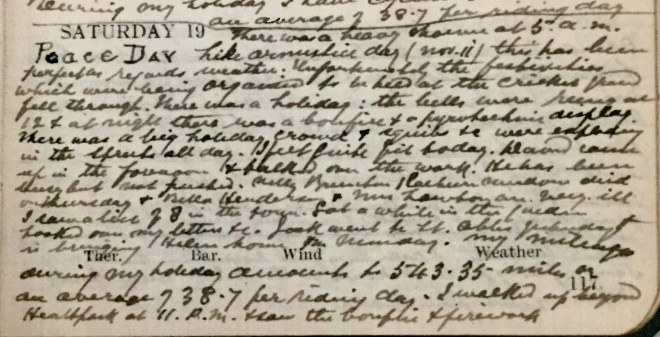 During my holiday I have cycled
an average of 38.7 per riding day
SATURDAY 19 There was a heavy shower at 5 a.m.
Peace Day Like armistice day (Nov. 11) this has been
perfect as regards weather. Unfortunately the festivities
which were being organised to be held at the cricket field
fell through. There was a holiday: the bells were rung at
12 & at night there was a bonfire & a pyrotechnic display.
There was a big holiday crowd & squibs &c were exploding
in the streets all day. I felt quite fit today. David came
up in the forenoon & talked over the work. He has been
busy but not rushed. died
on Thursday & Bella Henderson & Mrs Lawson are very ill
I saw a lot of 8 in the town. Sat a while in the garden
looked over my letters &c. Jack went to St. yesterday &
is bringing Helen home on Monday. My mileage
Ther. Bar. Wind Weather
during my holiday amounts to 543.35 miles or
117
an average of 38.7 per riding day. I walked up beyond
Heathpark at 11 P.M. & saw the bonfire & firework